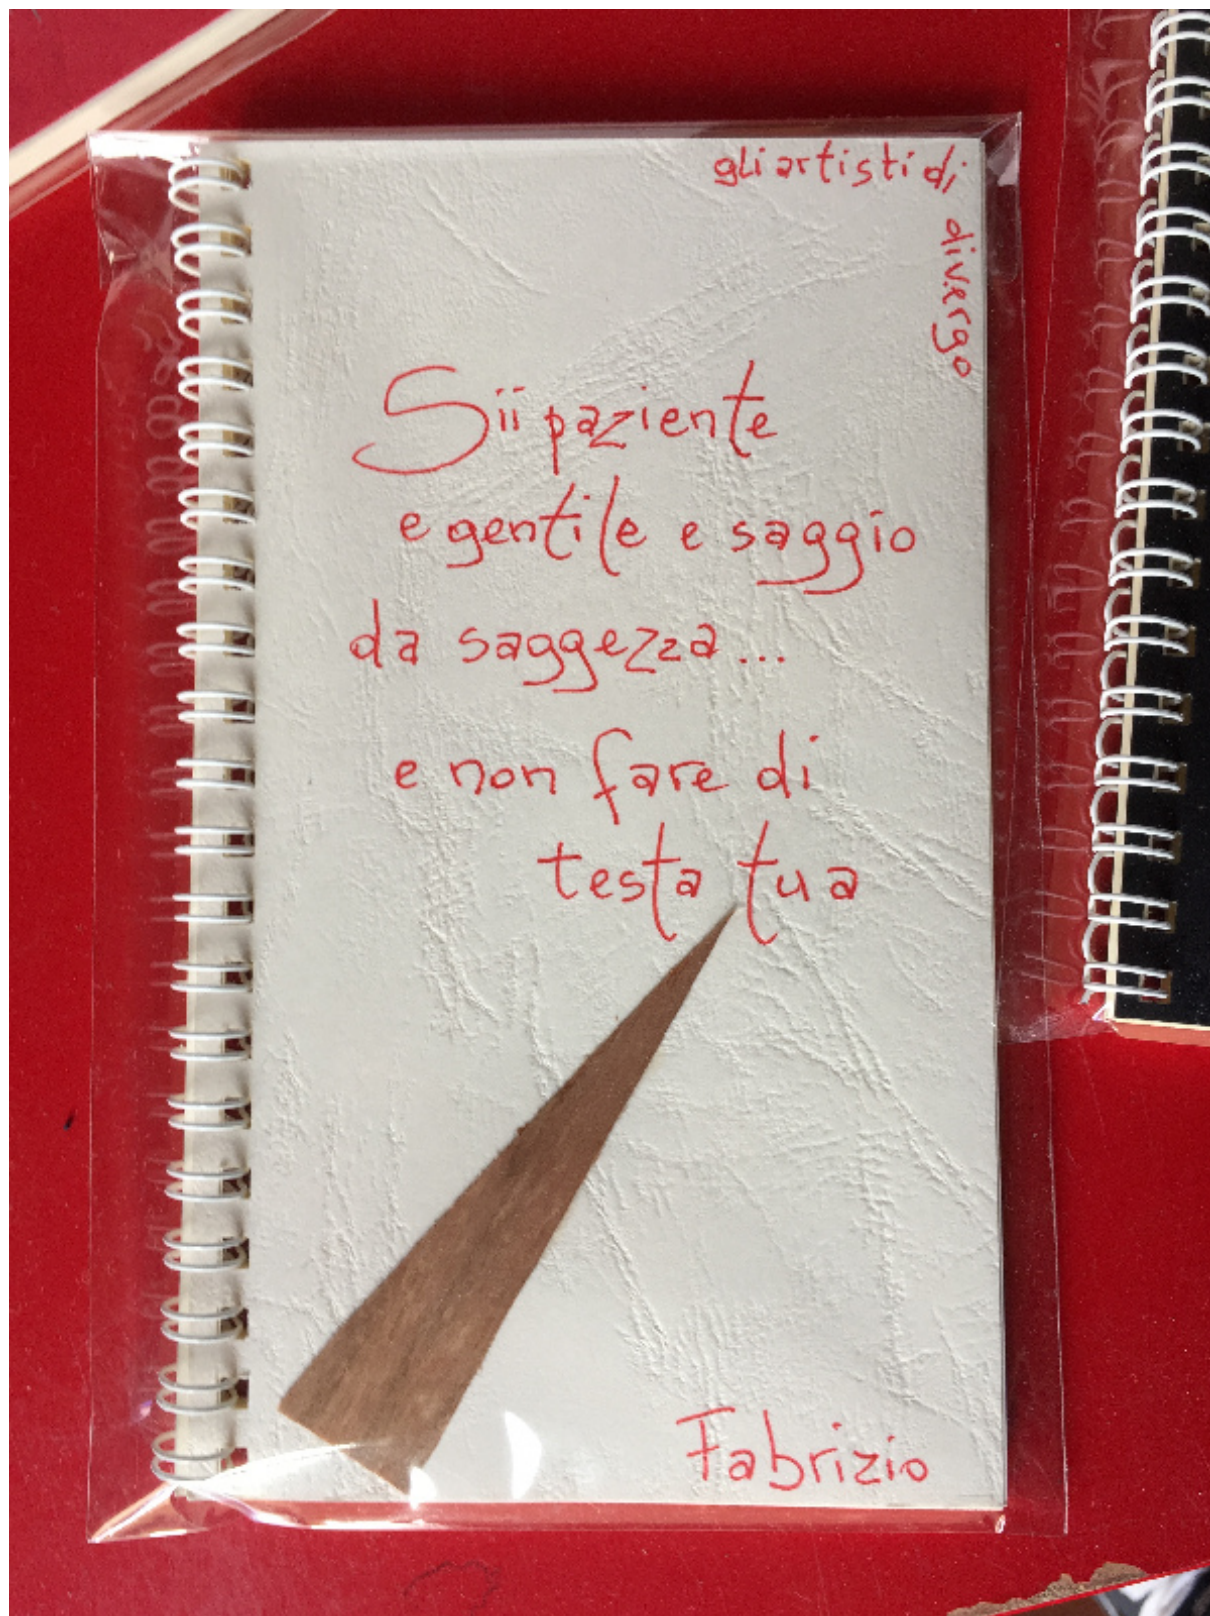 gli artisti di
divergo
Sii paziente
e gentile e saggio
da saggezza...
e non fare di
testa tua
Fabrizio